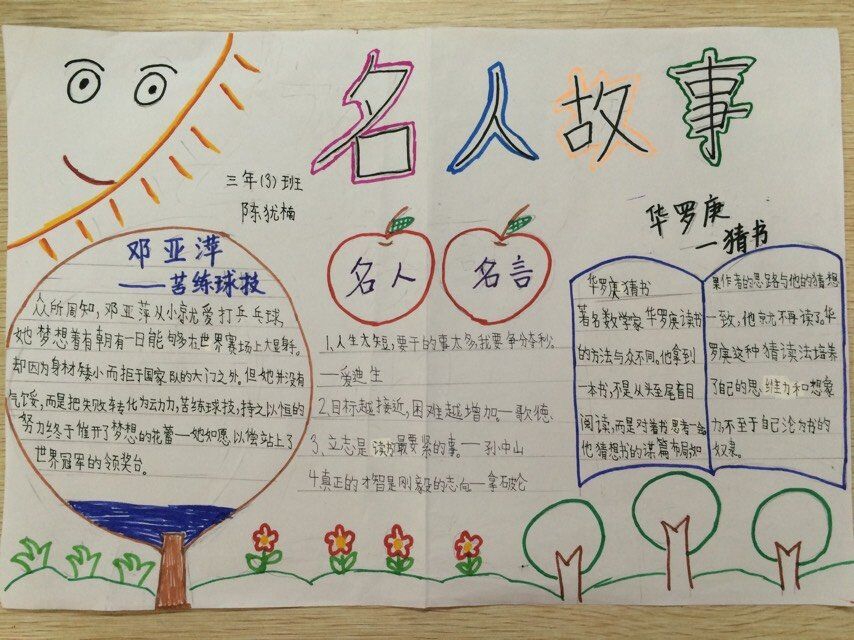 名人故事
三年(3)班
陈犹楠
邓亚萍
——苦练球技
众所周知,邓亚萍从小就尤爱打乒乓球,
她梦想着有朝有一日能够在世界赛场上大显身手。
却因为身材矮小而拒于国家队的大门之外。但她并没有
气馁,而是把失败转化为动力,苦练球技,持之以恒的
努力终于催开了梦想的花蕾—她如愿以偿站上了
世界冠军的领奖台。
名人
名言
1、人生太短,要干的事太多,我要争分夺秒。
—爱迪生
2、目标越接近,困难越增加。—歌德.
3、立志是读书最要紧的事。—孙中山
4、真正的才智是刚毅的志向—拿破仑
华罗庚
—猜书
华罗庚猜书
著名数学家华罗庚读书
的方法与众不同。他拿到
一本书,不是从头至尾盲目
阅读,而是对着书思考一会
他猜想书的谋篇布局,如
果作者的思路与他的猜想
一致,他就不再读了。华
罗庚这种猜读法培养
了自己的思维力和想象
力,不至于自己沦为书的
奴隶。